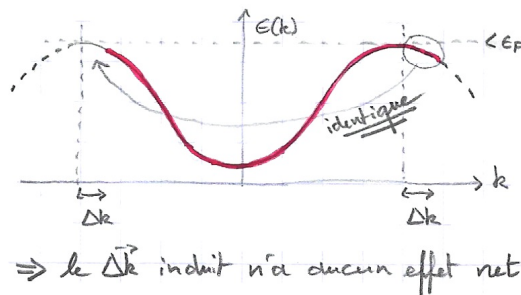 ε(k)
< εF
identique
k
Δk
Δk
⇒ le Δk⃗ induit n'a aucun effet net